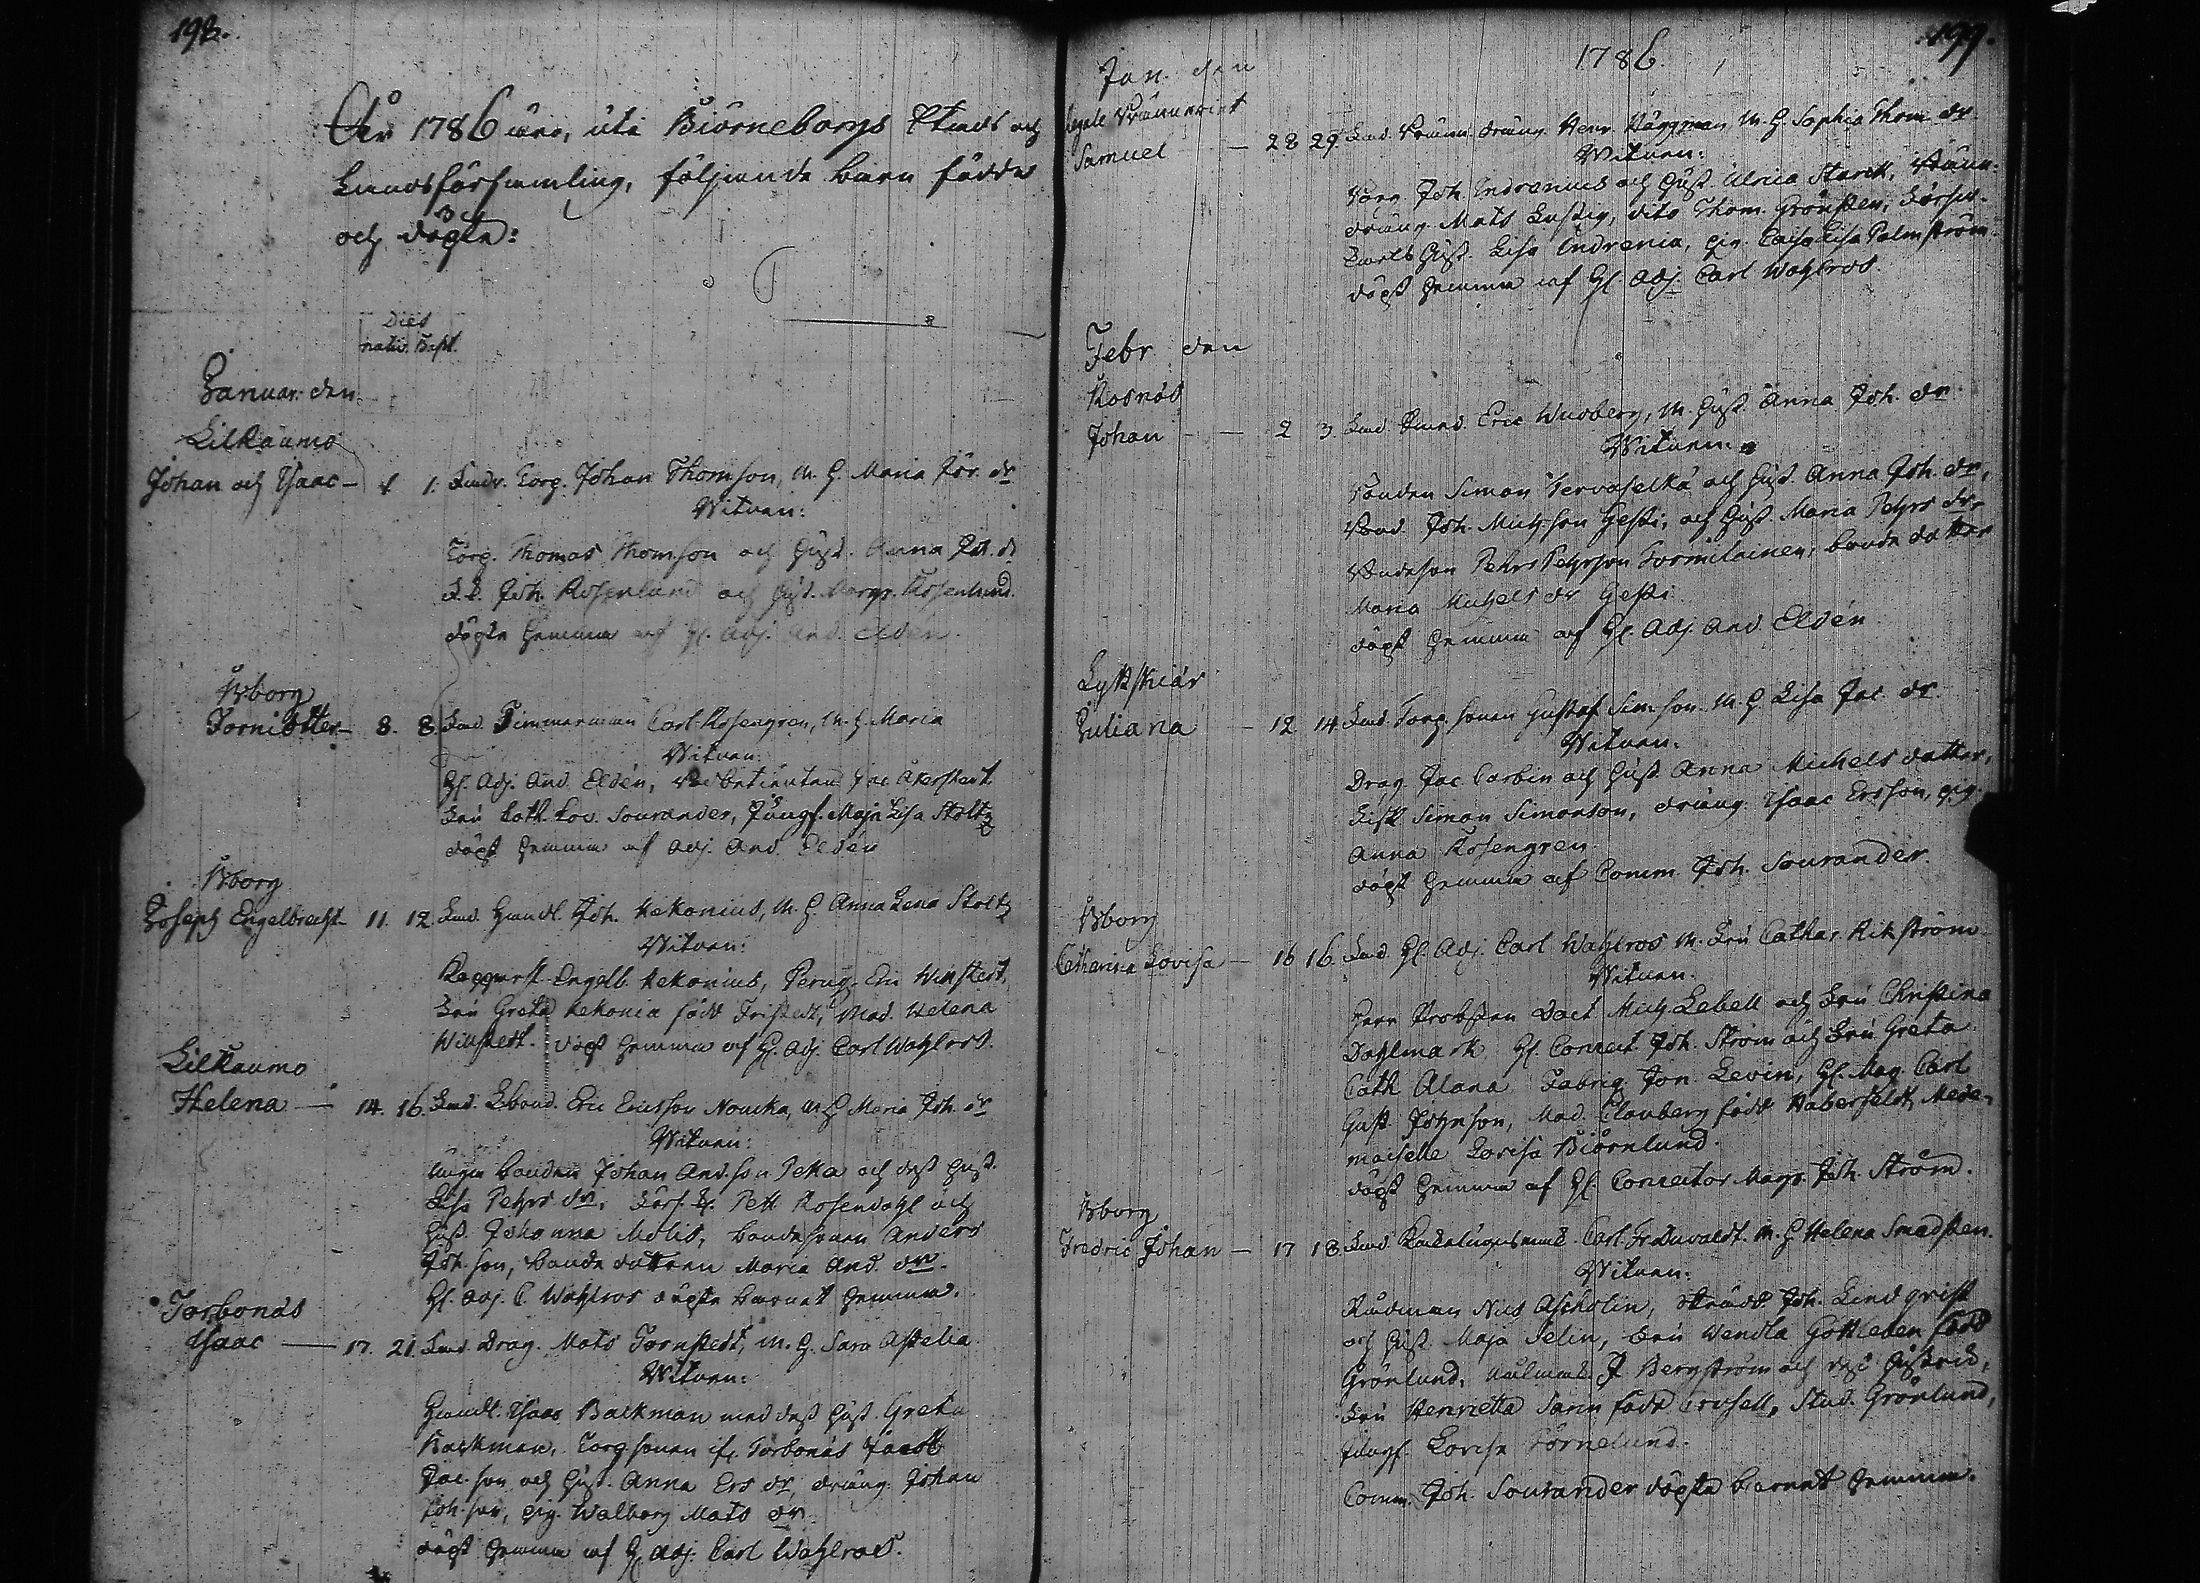 198.
Åhr 1786 äro, uti Biörneborgs Stads och
Landsförsamling, följande barn födde
och döpte:
Dies
nativ. Bapt.
Januar. den
Lilraumo
Johan och Isaac — 1. 1. Torp. Johan Thomson, M. H. Maria Jör. dr
Witnen:
Torp. Thomas Thomson och Hust. Anna Joh. d
Joh. Rosenlund och Hust. Margr. Rosenlund.
döpte hemma af H. Adj. And. Eldén.
Bborg
8. 8. Timmerman Carl Rosengren, M. H. Maria
Witnen:
H. Adj. And. Eldén, Betienten Jac Åkerstart
Fru Cath. Lov. Sourander, Jungf. Maja Lisa Stoltz
döpt hemma af Adj. And. Eldén
Bborg
Joseph Engelbrecht 11. 12. Handl. Joh. Kekonius, M. H. Anna Lena Stoltz
Witnen:
Engelb. Kekonius, Peruq. Eric Winstedt,
Fru Greta Kekonia född Fristedt, Mad. Helena
Winstedt. döpt hemma af H. Adj. Carl Wahlros.
Lilraumo
Helena — 14. 16. Eric Ericsson Noucka, M. H. Maria Joh. dr
Witnen:
bonden Johan And.son Peka och dess Hust.
Lisa Pehrs dr, Pett Rosendahl och
Hust. Johanna Molis, bondesonen Anders
Joh.son, bonde dottren Maria And. dr.
H. Adj. C. Wahlros döpte barnet hemma.
Torbonäs
Isaac — 17. 21. Drag. Mats Tornstedt, M. H. Sara Astelia
Witnen:
Handl. Isaac Backman med dess Hust. Greta
Backman, Torp sonen if. Torbonäs Jacob
Jac.son och Hust. Anna Ers dr, dräng. Johan
Joh.son, pig. Walborg Mats dr
döpt hemma af H. Adj. Carl Wahlros.
199.
1786.
Jan. den
Samuel — 28 29. Henr Häggman, M. H. Sophia Thom. dr
Witnen:
Joh. Indrenius och Hust. Ulrica Starck,
dräng. Mats Lustig, dito Thom. Grönsten,
Hust. Lisa Indrenia, pig. Caisa Lisa Palmström.
döpt hemma af H. Adj. Carl Wahlros.
Febr den
Rosnäs
Johan — 2 3. Eric Widberg, M. Hust. Anna Joh. dr
Witnen:
bonden Simon Tervaselkä och Hust. Anna Joh. dr,
Bond. Joh. Mich.son Hesti, och Hust. Maria Pehrs dr
bondeson Pehr Pehrson Tormilainen, bonde dotter
Maria Michels dr Hesti.
döpt hemma af H. Adj. And. Eldén
Lyttskiär
Juliana — 12 14. Torp. sonen Gustaf Sim.son M. H. Lisa Jac. dr
Witnen.
Drag. Jac Corbin och Hust. Anna Michels dotter,
Simon Simonson, dräng. Isaac Ersson, pig.
Anna Rosengren.
döpt hemma af Comm. Joh. Sourander.
Bborg
Catharina Lovisa — 16 16. H. Adj. Carl Wahlros M. Fru Cathar. Rikström
Witnen.
Herr Probsten Doct Mich. Lebell och Fru Christina
Dahlmark, H. Conrect Joh. Ström och Fru Greta
Cath Alana, Fabriq. Jon. Levin, H. Mag Carl
Gust. Johnson, Mad. Clouberg född Haberfeldt, Made-
moiselle Lovisa Biörnlund.
döpt hemma af H. Conrector Magr. Joh. Ström.
Bborg
Fredric Johan — 17 18. Kakelugnsmak. Carl Fr Duvaldt. M. H Helena Smedsten.
Witnen:
Rådman Nils Ascholin, Joh. Lindqvist
och Hust. Maja Selin, Fru Wendla Gottleben född
Grönlund, Bergström och dess Hustru,
Fru Henrietta Sarin född Crusell, Stud. Grönlund,
Jungf. Lovisa Törnelund.
Comm. Joh. Sourander döpte barnet hemma.